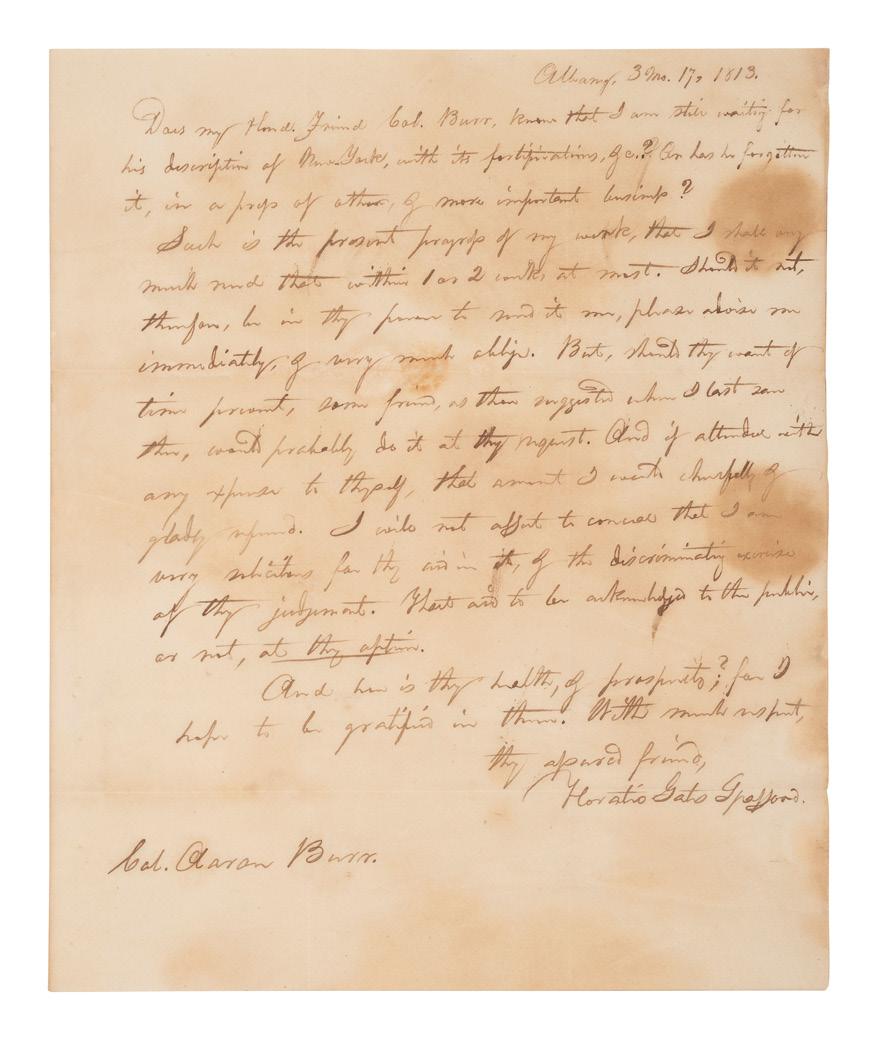 Albany, 3 Mo. 17, 1813.
Does my Hond. Friend Col. Burr, know that I am still waiting for
his description of New-York, with its fortifications, &c.? Or has he forgotten
it, in a press of other, & more important business?
Such is the present progress of my work, that I shall very
much need that within 1 or 2 weeks, at most. Should it not,
therefore, be in thy power to send it me, please advise me
immediately, & very much oblige. But, should thy want of
time prevent, some friend, as thou suggested when I last saw
thee, would probably do it at thy request. And if attended with
any expense to thyself, that amount I would cheerfully &
gladly refund. I will not affect to conceal that I am
very solicitous for thy aid in it, & the discriminating exercise
of thy judgement. That aid to be acknowledged to the public,
or not, at thy option.
And how is thy health, & prospects? for I
hope to be gratified in them. With much respect,
thy assured friend,
Horatio Gates Spafford.
Col. Aaron Burr.